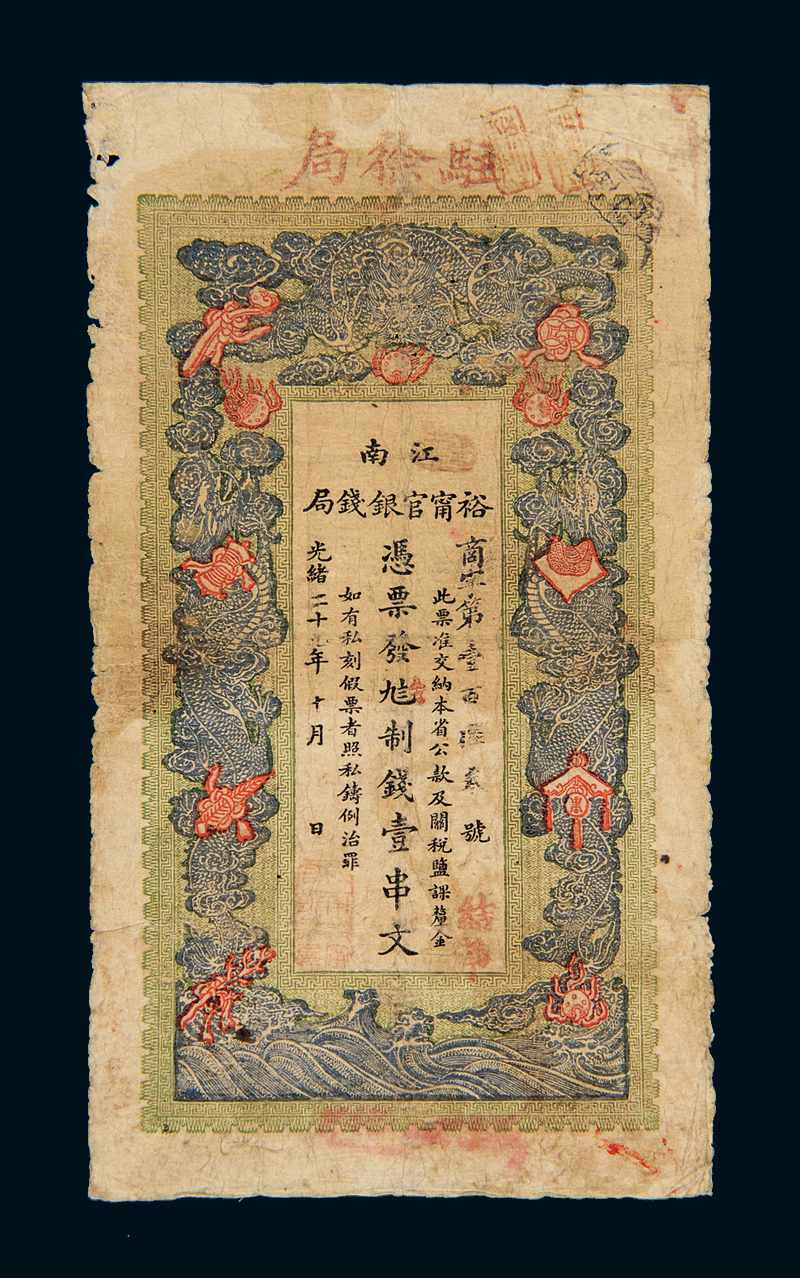 駐徐局
江南
裕甯官銀錢局
商字第壹百號
結
此票准交納本省公款及關稅鹽課釐金
憑票發制錢壹串文
如有私刻假票者照私鑄例治罪
光緒二十年十月 日